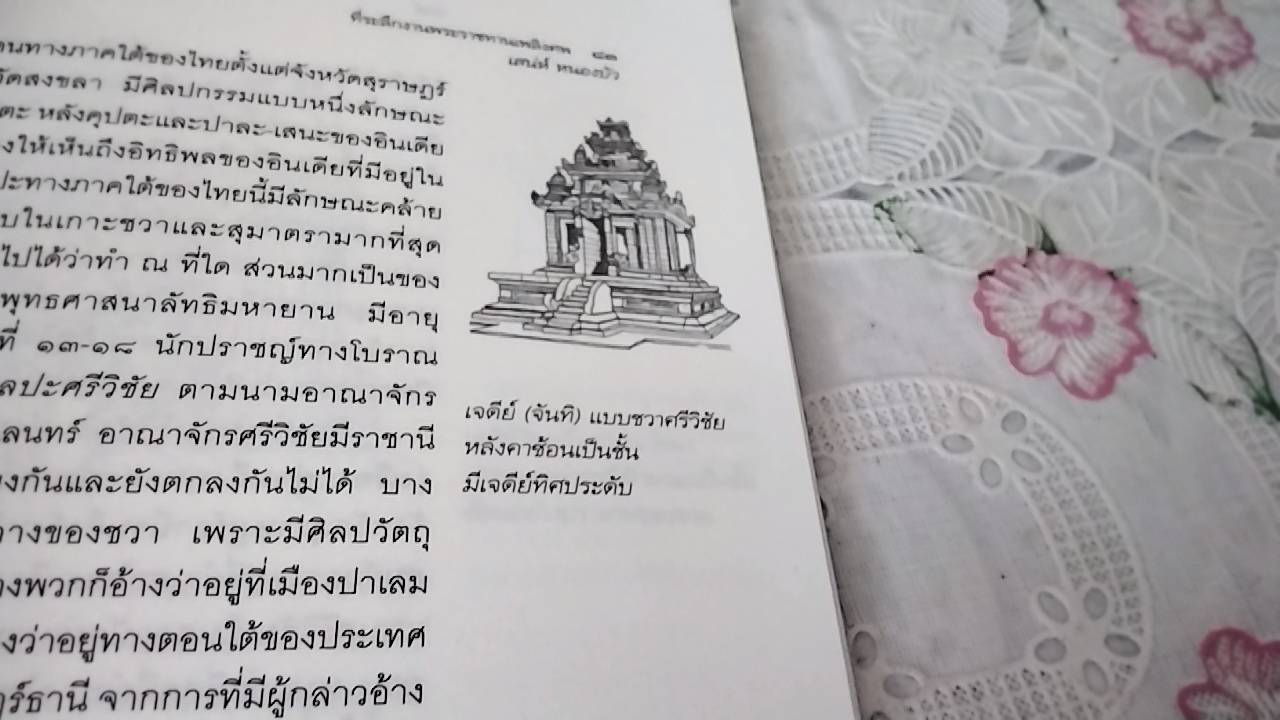 ที่ระลึกงานพระราชทานเพลิงศพ ๘๓
เสน่ห์ หนองบัว
ทางภาคใต้ของไทยตั้งแต่จังหวัดสุราษฎร์
สงขลา มีศิลปกรรมแบบหนึ่งลักษณะ
หลังคุปตะและปาละ-เสนะของอินเดีย
ให้เห็นถึงอิทธิพลของอินเดียที่มีอยู่ใน
ทางภาคใต้ของไทยนี้มีลักษณะคล้าย
ในเกาะชวาและสุมาตรามากที่สุด
ไปได้ว่าทำ ณ ที่ใด ส่วนมากเป็นของ
พุทธศาสนาลัทธิมหายาน มีอายุ
ที่ ๑๓-๑๘ นักปราชญ์ทางโบราณ
ลปะศรีวิชัย ตามนามอาณาจักร
ลนทร์ อาณาจักรศรีวิชัยมีราชานี
งกันและยังตกลงกันไม่ได้ บาง
างของชวา เพราะมีศิลปวัตถุ
งพวกก็อ้างว่าอยู่ที่เมืองปาเลม
งว่าอยู่ทางตอนใต้ของประเทศ
ร์ธานี จากการที่มีผู้กล่าวอ้าง
เจดีย์ (จันทิ) แบบชวาศรีวิชัย
หลังคาซ้อนเป็นชั้น
มีเจดีย์ทิศประดับ